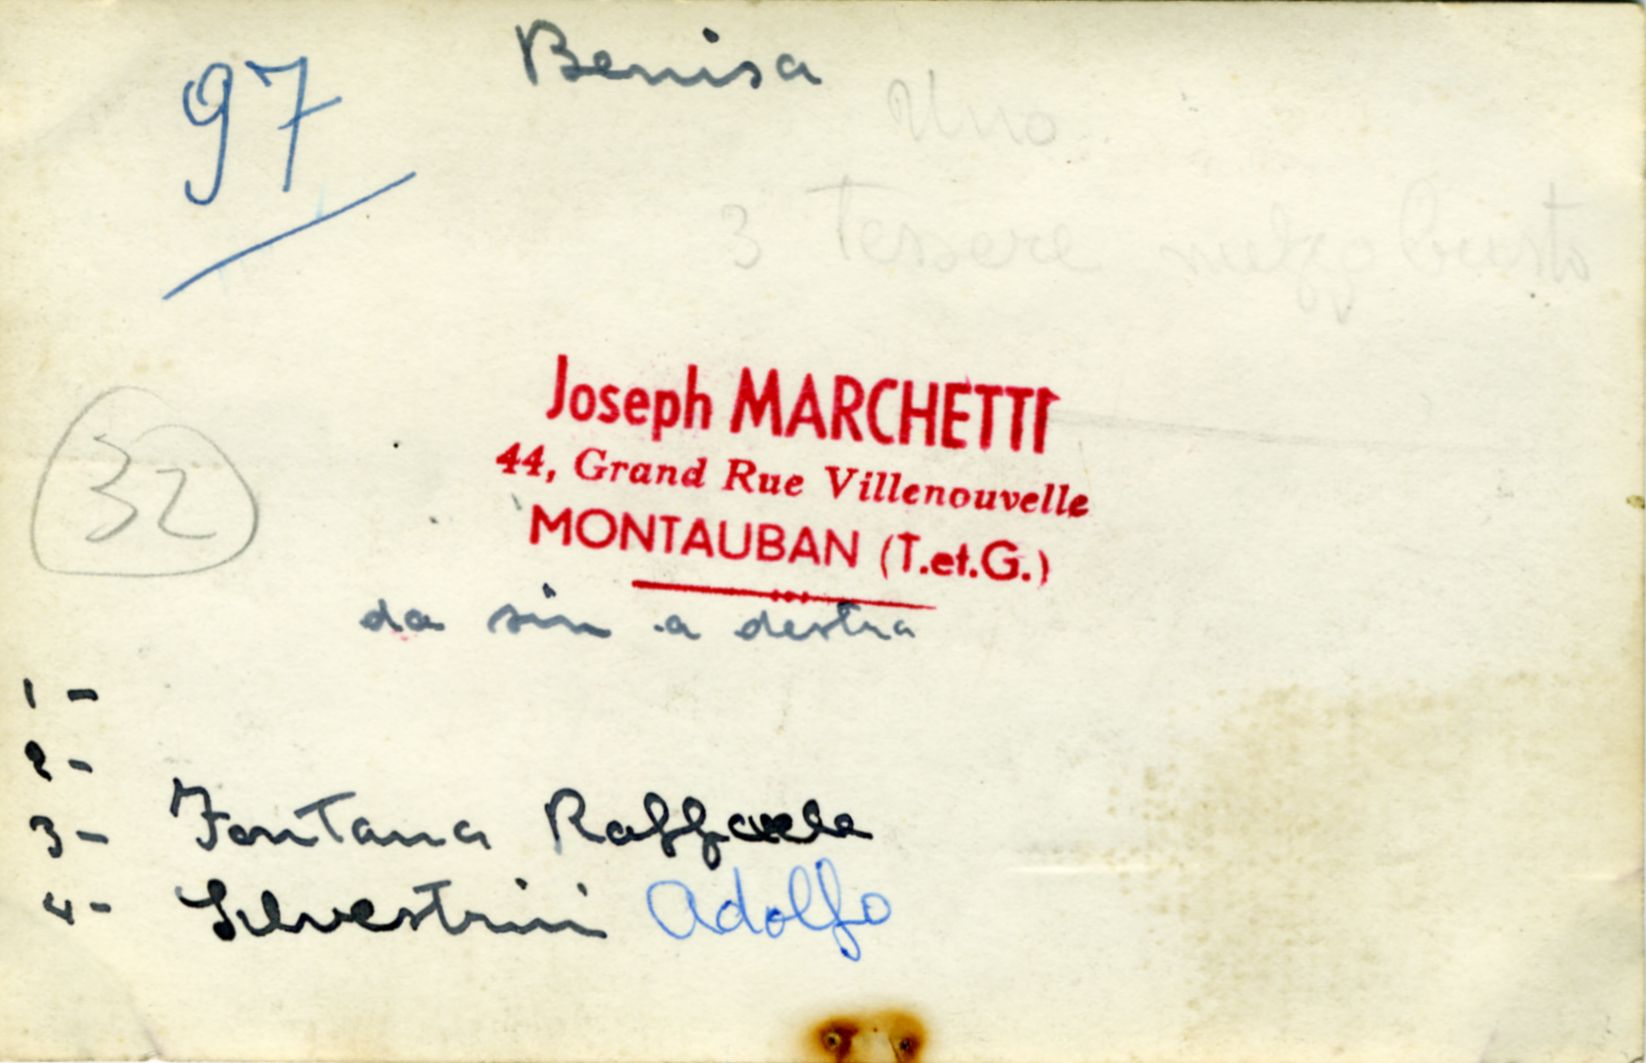 97
Benisa
Uno
3 Tessere mezzo busto
Joseph MARCHETTI
44, Grand Rue Villenouvelle
MONTAUBAN (T.et.G.)
32
da sin a destra
1 -
2 -
3 - Fontana Raffaele
4 - Silvestrini Adolfo